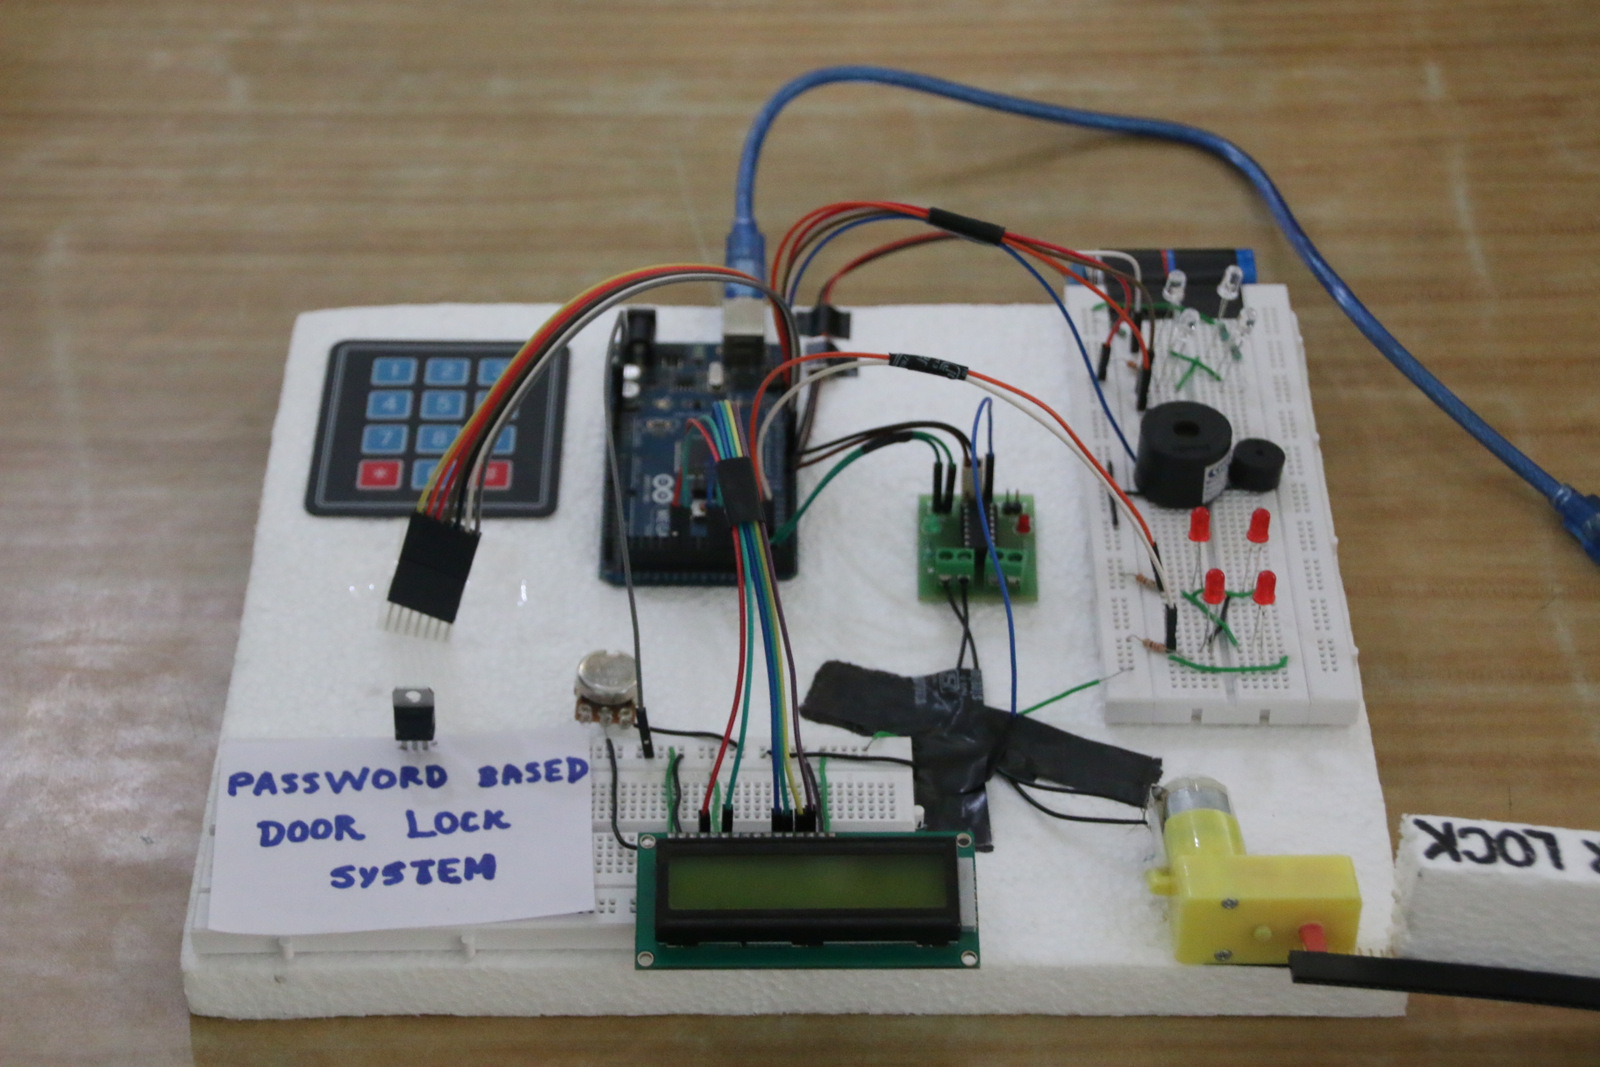 1 2 3
4 5
7 8
*
PASSWORD BASED
DOOR LOCK
SYSTEM
LOCK